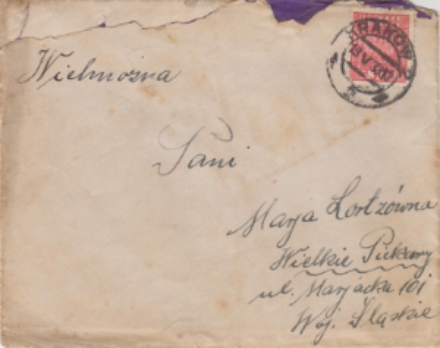 KRAKÓW 2
Wielmożna
Pani
Marja Lortzówna
Wielkie Piekary
ul. Marjacka 101
Woj. Śląskie